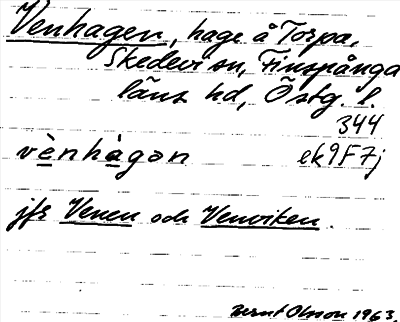 Venhagen, hage å Torpa,
Skedevi sn, Finspånga
läns hd, Östg. l.
344
vè̱nhà̱gən ek9F7j
jfr Venen och Venviken.
Bernt Olsson 1963.